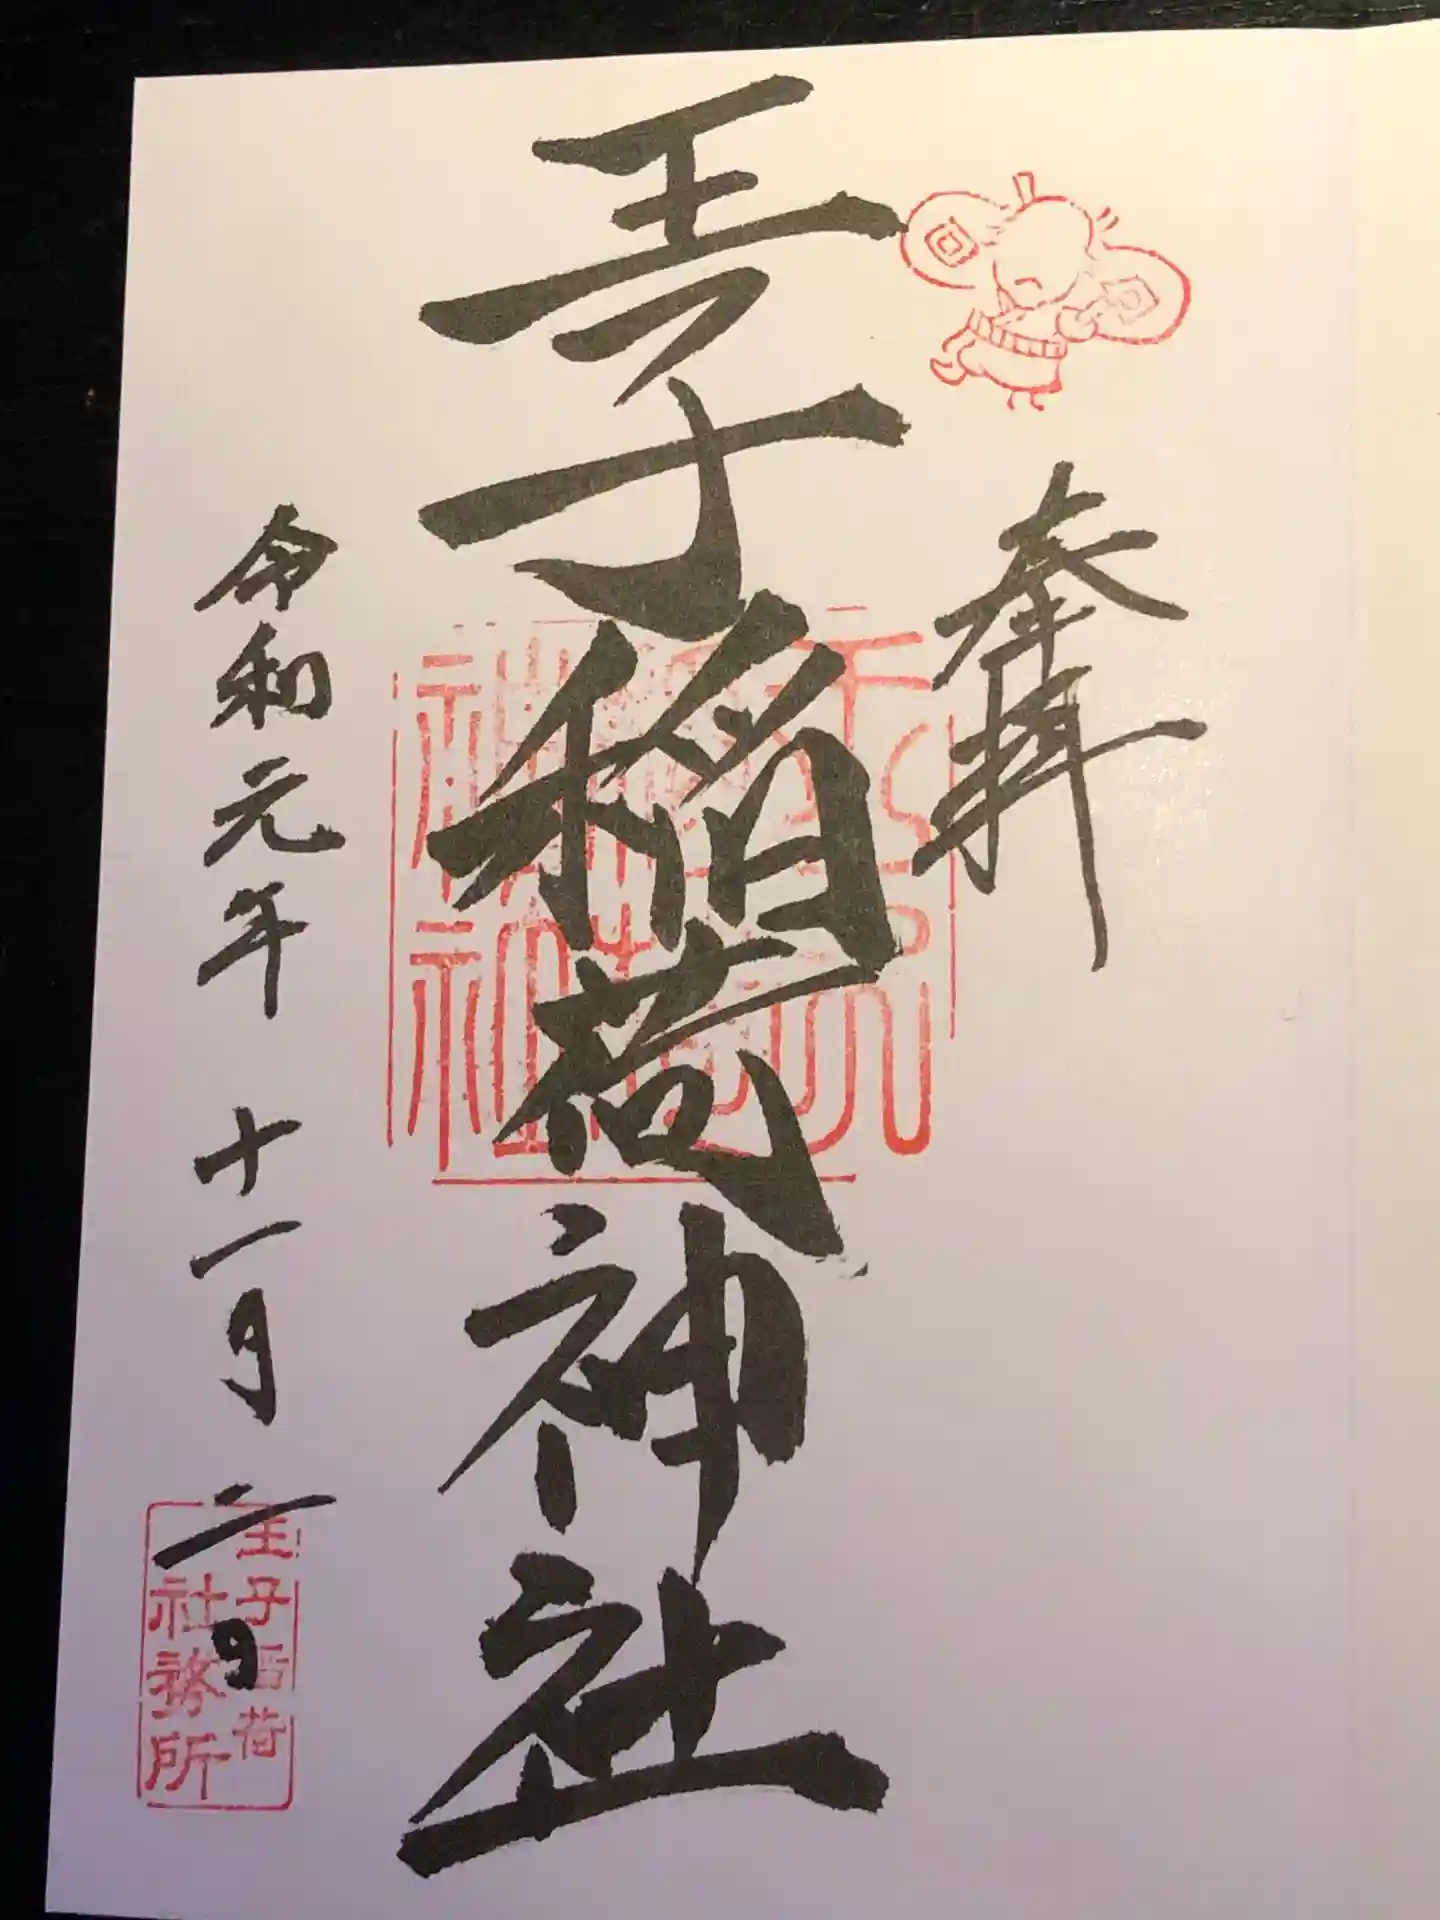 奉拝
王子稲荷神社
令和元年十一月二日
王子稲荷
社務所